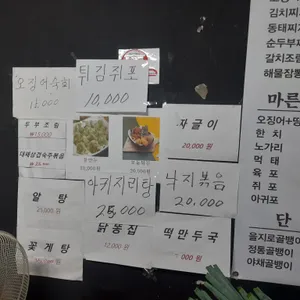 오징어숙회
15,000
튀김쥐포
10,000
두부조림
₩15,000
대패삼겹숙주볶음
짜글이
20,000 원
알탕
25,000 원
아키지리탕
25,000
낙지볶음
20,000
꽃게탕
닭똥집
12,000 원
떡만두국
000 원
순두부
갈치조림
해물잠뽕
마른
오징어+땅
한 치
노가리
먹 태
육 포
쥐 포
아귀포
단
을지로골뱅이
정통골뱅이
야채골뱅이